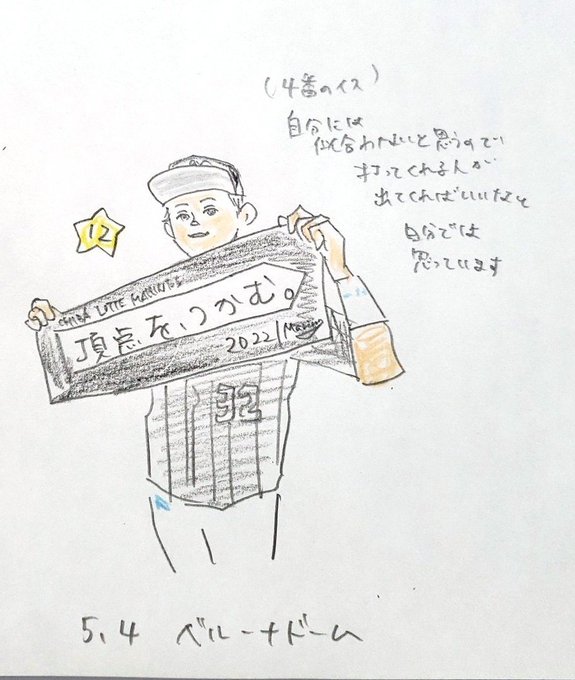 (4番のイス)
自分には
似合わないと思うので
打ってくれる人が
出てくればいいなと
自分では
思っています
12
CHIBA LOTTE MARINES
頂点を、つかむ。
2022
Marines
32
5.4 ベルーナドーム